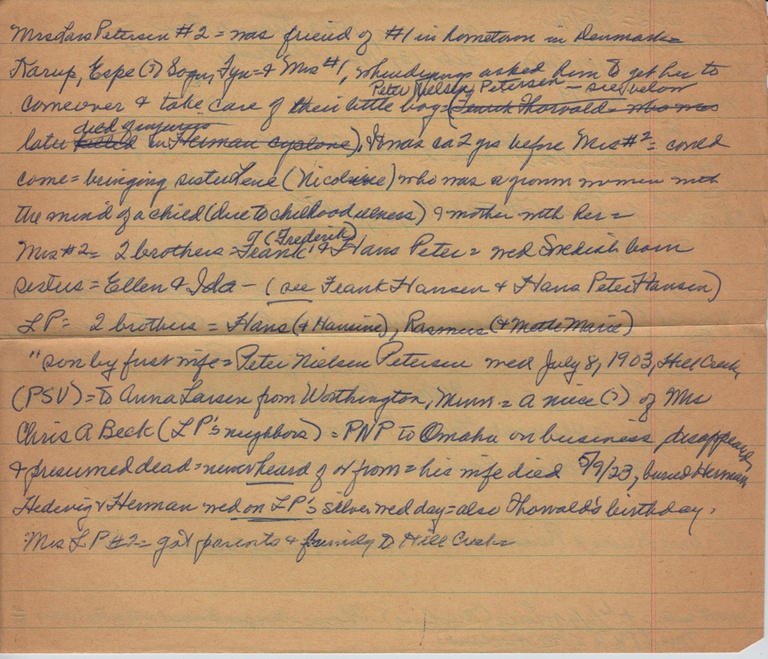 Mrs Lars Petersen #2 = was friend of #1 in hometown in Denmark =
Karup, Espe (?) Sogn, Fyn = & Mrs #1, when dying asked him to get her to
Peter Nielsen Petersen - see below
come over & take care of their little boy = (Frank Thorvald = who was
died of injuries
later killed in Herman cyclone), It was ca 2 yrs before Mrs #2 = could
come = bringing sister Lene (Nicoline) who was a grown woman with
the mind of a child (due to childhood illness) & mother with her =
(Frederik)
Mrs #2 = 2 brothers = Frank & Hans Peter = wed Swedish born
sisters = Ellen & Ida - (see Frank Hansen & Hans Peter Hansen)
LP = 2 brothers = Hans (& Hansine), Rasmus (& Mette Marie)
" son by first wife = Peter Nielsen Petersen wed July 8, 1903, Hill Creek,
(PSV) = to Anna Larsen from Worthington, Minn = a niece (?) of Mrs
Chris A Beck (LP's neighbors) = PNP to Omaha on business disappeared,
& presumed dead = never heard of or from = his wife died 5/9/23, buried Herman,
Hedevig & Herman wed on LP's silver wed day = also Thorvald's birthday.
Mrs LP #2 = got parents & family to Hill Creek =